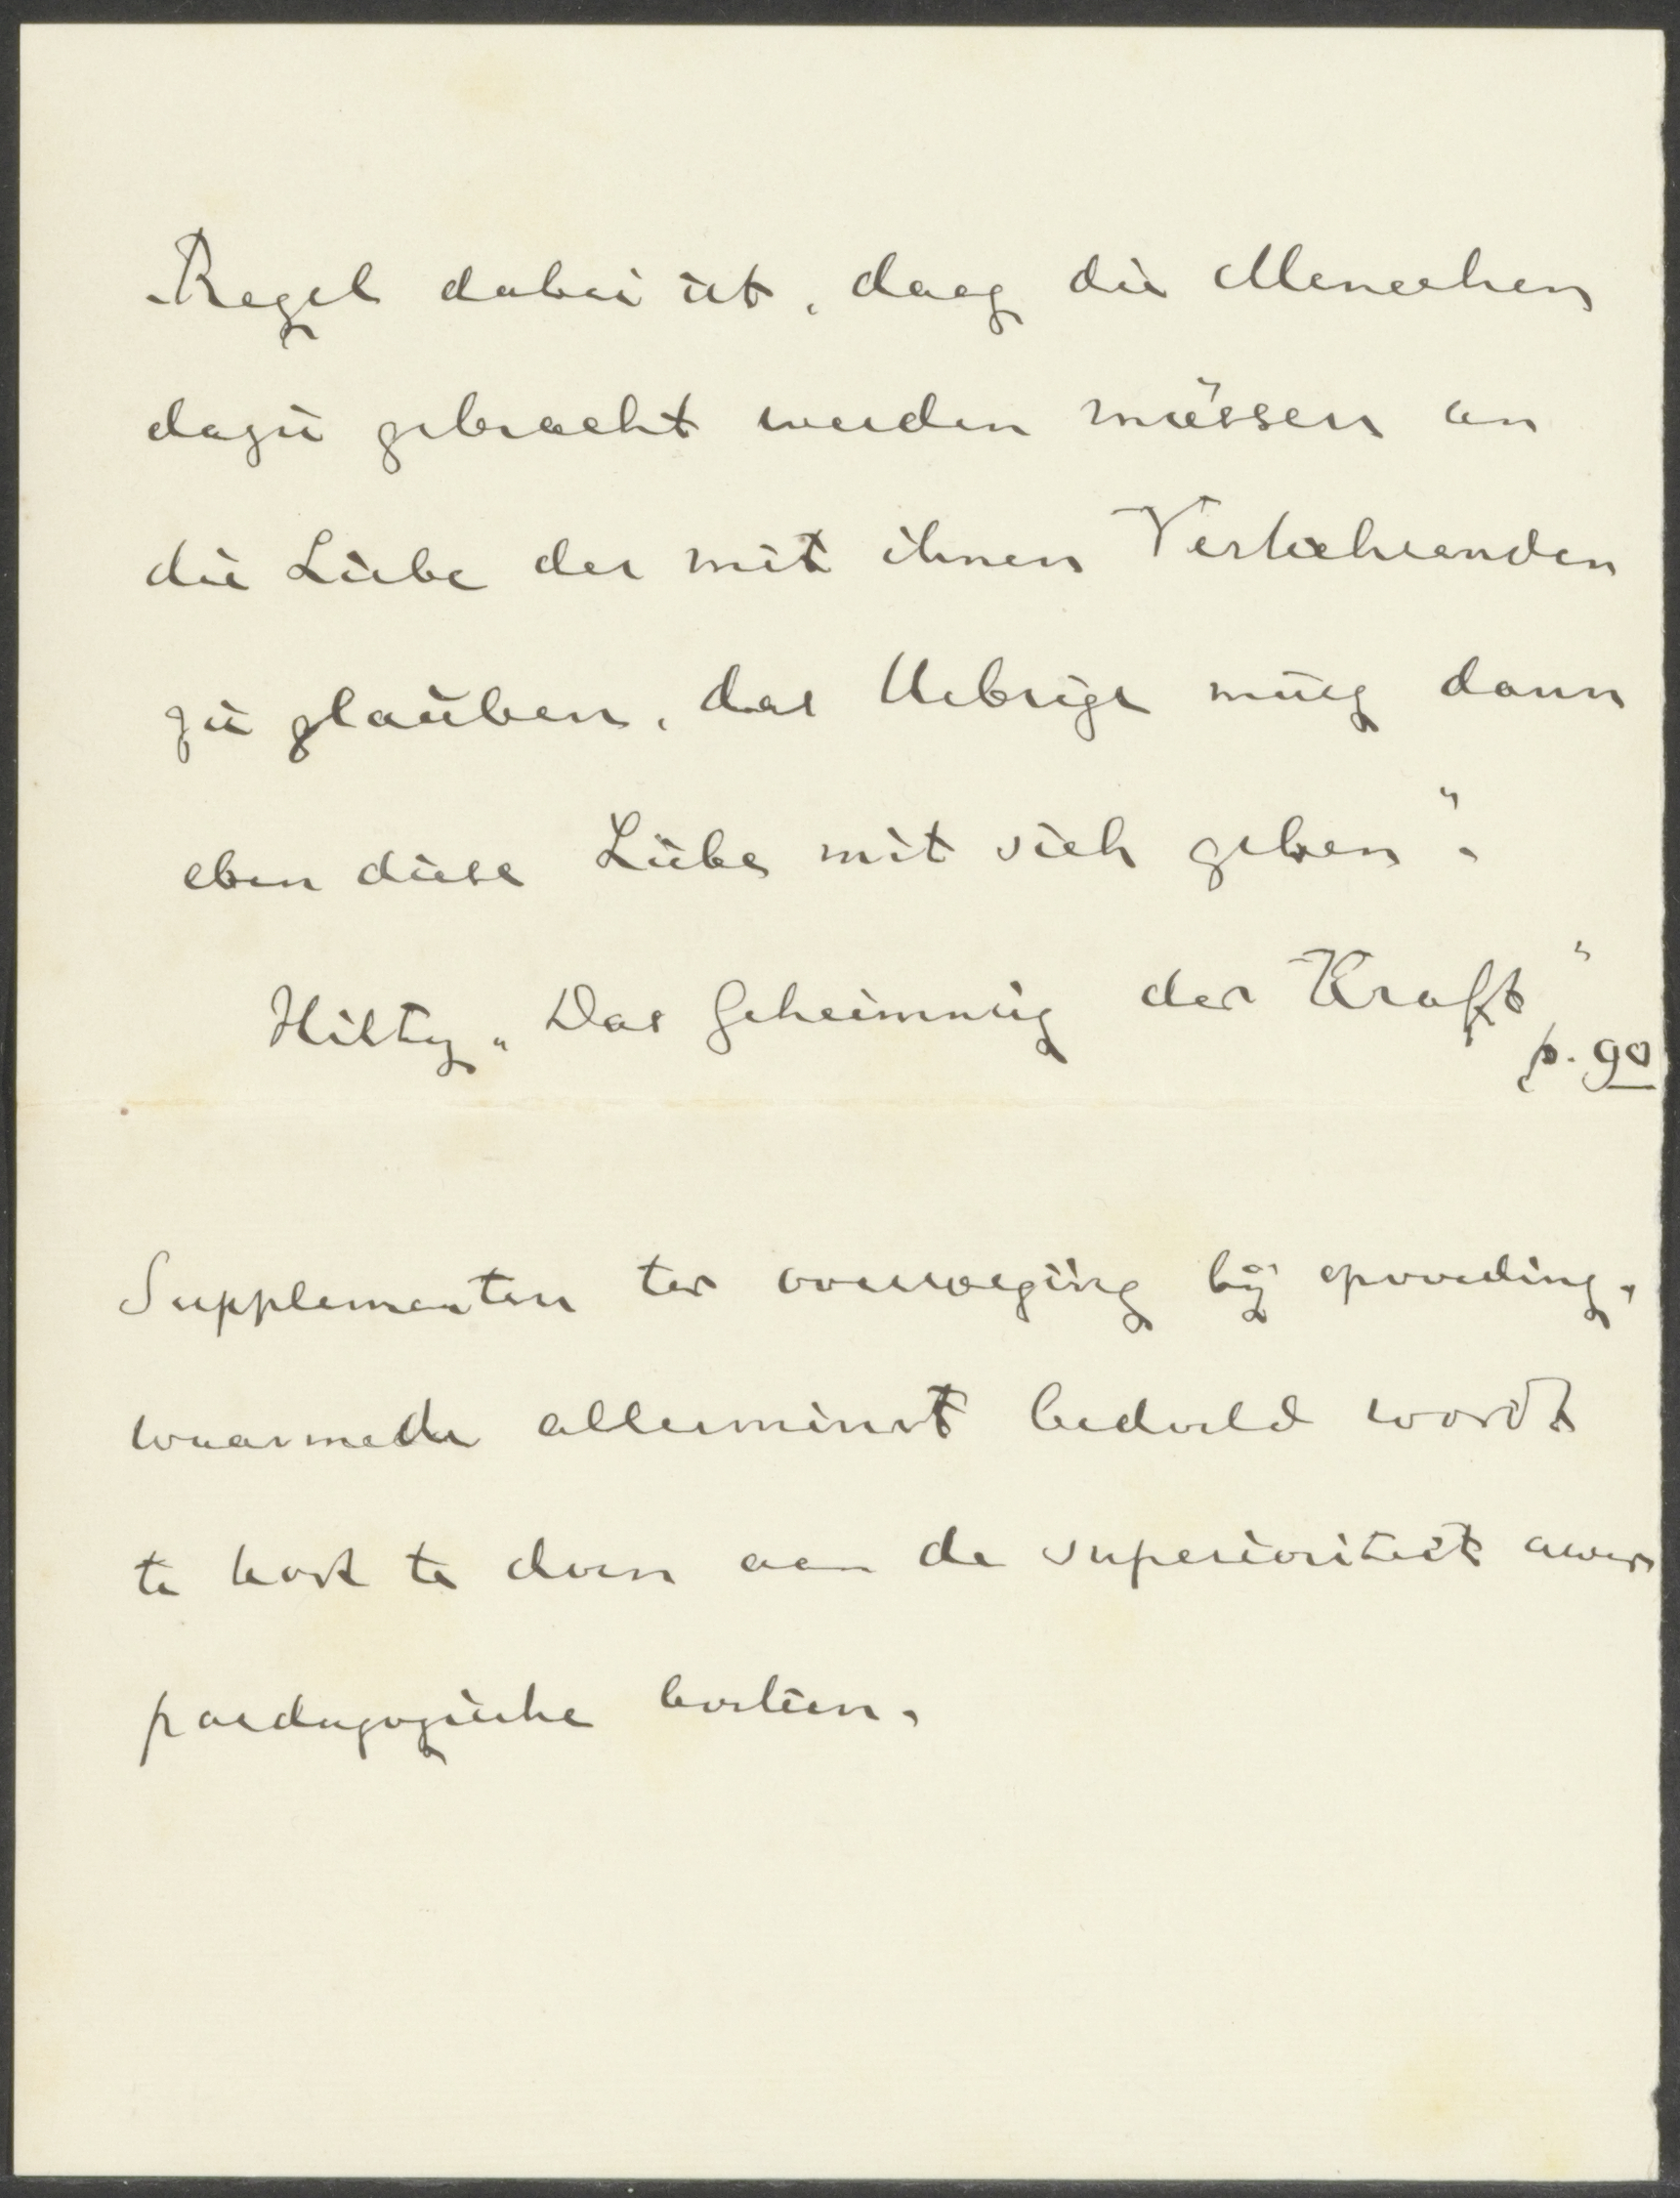 Regel dabei ist, dasz die Menschen
dazu gebracht werden müssen an
die Liebe der mit ihnen Verkehrenden
zu glauben, das Uebrige musz dann
eben diese Liebe mit sich geben".
Hilty „Das Geheimnisz der Kraft"
p. 90
Supplementen ter overweging bij opvoeding,
waarmede allerminst bedoeld wordt
te kort te doen aan de superioriteit uwer
paedagogische